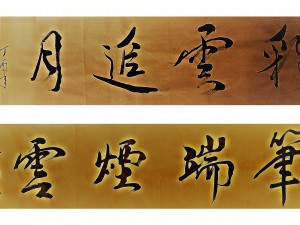 彩雲追月
筆端煙雲